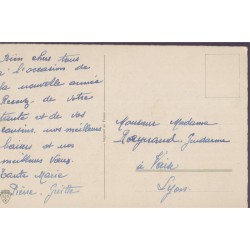 Bien chers tous
à l'occasion de
la nouvelle année
Recevez de votre
tante et de vos
cousins, nos meilleurs
baisers et nos
meilleurs Vœux.
Sainte Marie
Pierre - 
Monsieur Madame
Raynaud Gendarme
à
Lyon.